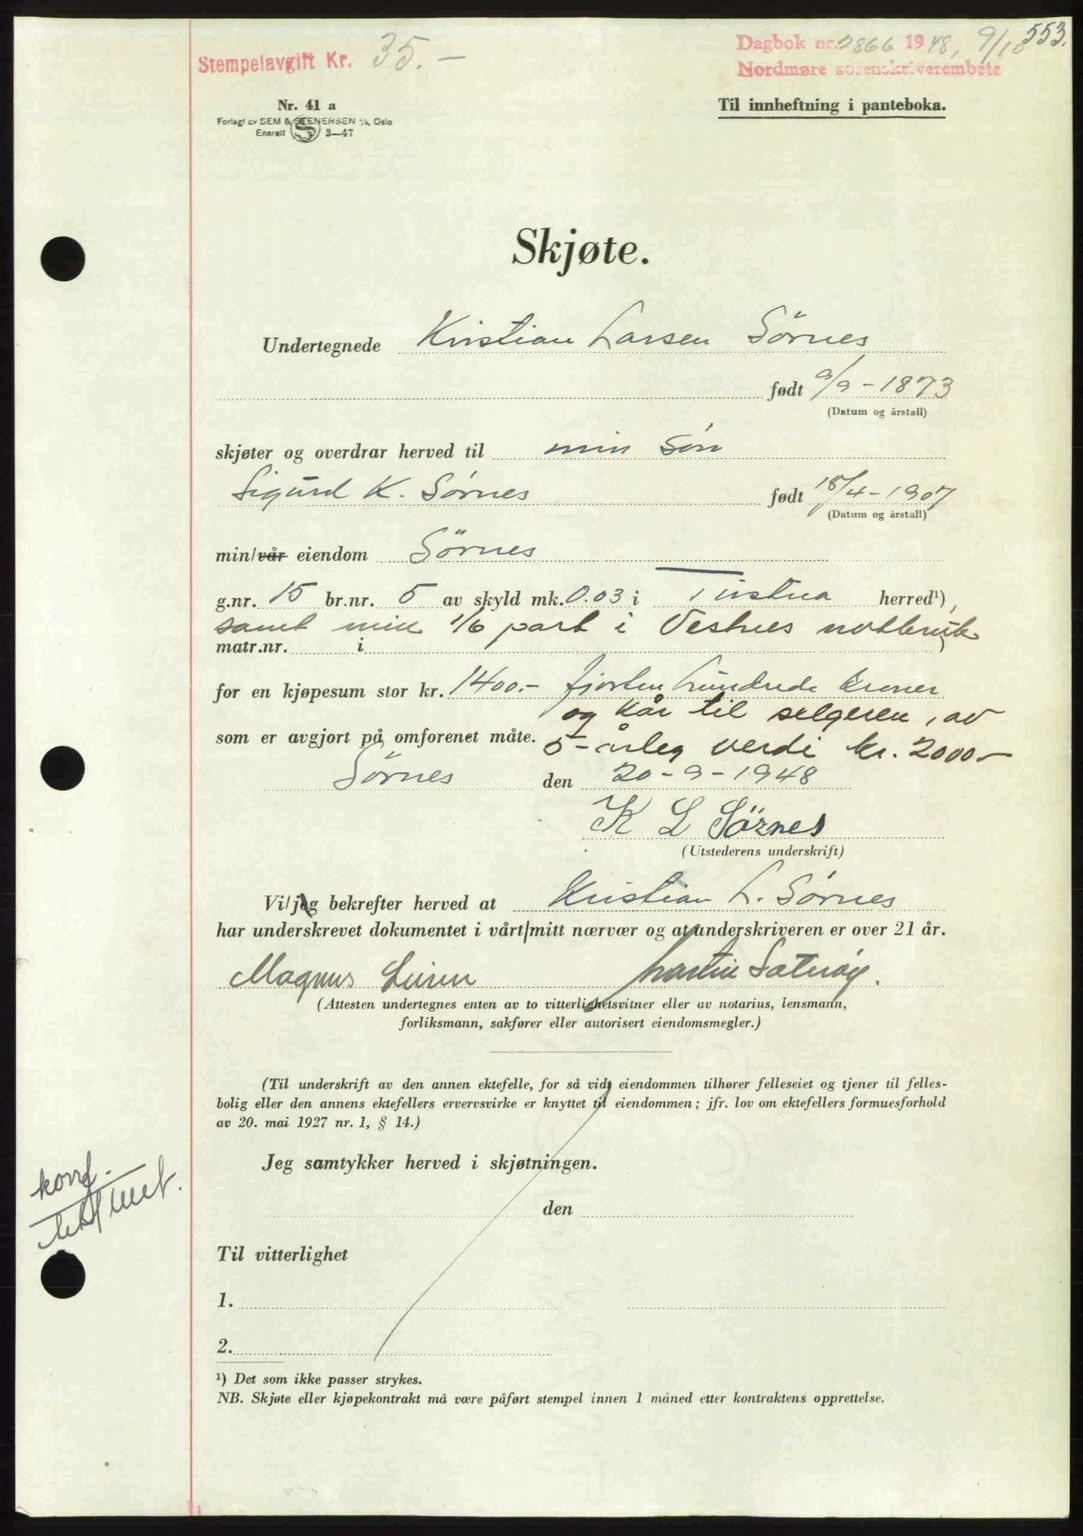 553.
Stempelavgift Kr. 35.-
Dagbok nr. 2866 1948, 9/10
Nordmøre sorenskriverembete
Nr. 41 a
Forlagt av SEM & STENERSEN A/S, Oslo
Enerett S 3—47
Til innheftning i panteboka.
Skjøte.
Undertegnede Kristian Larsen Sörnes
født 9/9 - 1873
(Datum og årstall)
skjøter og overdrar herved til min sön
Sigurd K. Sörnes født 18/4 - 1907
(Datum og årstall)
min/vår eiendom Sörnes
g.nr. 15 br.nr. 5 av skyld mk. 0.03 i Tustna herred¹),
samt min 1/6 part i Vestnes notbruk
matr.nr. i )
for en kjøpesum stor kr. 1400.- fjorten hundrede kroner
og kår til selgeren, av
som er avgjort på omforenet måte. 5-årleg verdi kr. 2000.-
Sörnes den 20-9-1948
K L Sörnes
(Utstederens underskrift)
Vi/jeg bekrefter herved at Kristian L. Sörnes
har underskrevet dokumentet i vårt/mitt nærvær og at underskriveren er over 21 år.
Magnus
(Attesten undertegnes enten av to vitterlighetsvitner eller av notarius, lensmann,
forliksmann, sakfører eller autorisert eiendomsmegler.)
(Til underskrift av den annen ektefelle, for så vidt eiendommen tilhører felleseiet og tjener til felles-
bolig eller den annens ektefellers ervervsvirke er knyttet til eiendommen; jfr. lov om ektefellers formuesforhold
av 20. mai 1927 nr. 1, § 14.)
Jeg samtykker herved i skjøtningen.
den
Til vitterlighet
1.
2.
¹) Det som ikke passer strykes.
NB. Skjøte eller kjøpekontrakt må være påført stempel innen 1 måned etter kontraktens opprettelse.